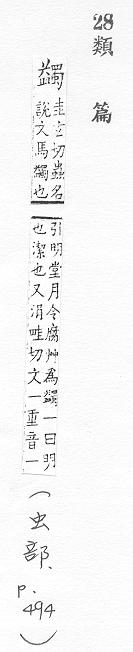 28 類篇
蠲
圭玄切蟲名
說文馬蠲也
引明堂月令腐艸為蠲一曰明
也潔也又涓畦切文一重音一
(虫部. p. 494)